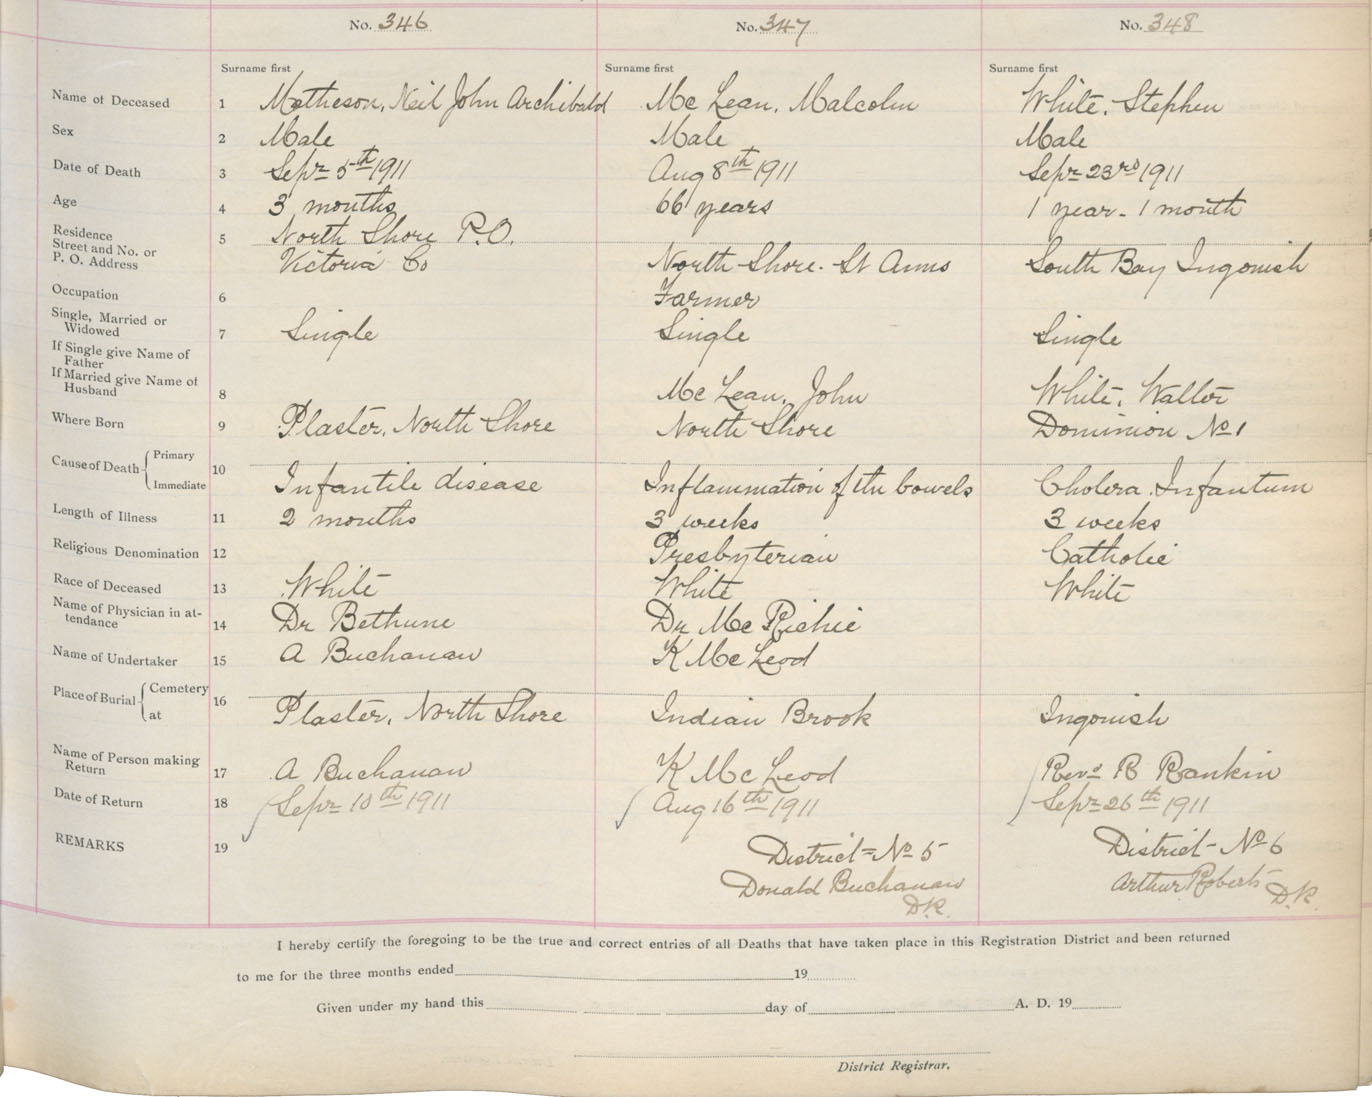 No. 346 No. 347 No. 348
Surname first Surname first Surname first
Name of Deceased 1 Matheson, Neil John Archibald Mc Lean, Malcolm White, Stephen
Sex 2 Male Male Male
Date of Death 3 Sepr 5th 1911 Aug 8th 1911 Sepr 23rd 1911
Age 4 3 months 66 years 1 year - 1 month
Residence 5 North Shore P.O.
Street and No. or
P. O. Address Victoria Co North Shore. St Anns South Bay Ingonish
Occupation 6 Farmer
Single, Married or
Widowed 7 Single Single Single
If Single give Name of
Father
If Married give Name of
Husband 8 Mc Lean, John White, Walter
Where Born 9 Plaster, North Shore North Shore Dominion No 1
Cause of Death Primary 10
Immediate Infantile disease Inflammation of the bowels Cholera Infantum
Length of Illness 11 2 months 3 weeks 3 weeks
Religious Denomination 12 Presbyterian Catholic
Race of Deceased 13 White White White
Name of Physician in at-
tendance 14 Dr Bethune Dr Mc Richie
Name of Undertaker 15 A Buchanan K Mc Leod
Place of Burial Cemetery 16
at Plaster, North Shore Indian Brook Ingonish
Name of Person making
Return 17 A Buchanan K Mc Leod Revd R Rankin
Date of Return 18 Sepr 10th 1911 Aug 16th 1911 Sepr 26th 1911
REMARKS 19 District No 5 District No 6
Donald Buchanan Arthur Roberts
D.R. D.R.
I hereby certify the foregoing to be the true and correct entries of all Deaths that have taken place in this Registration District and been returned
to me for the three months ended 19
Given under my hand this day of A. D. 19
District Registrar.